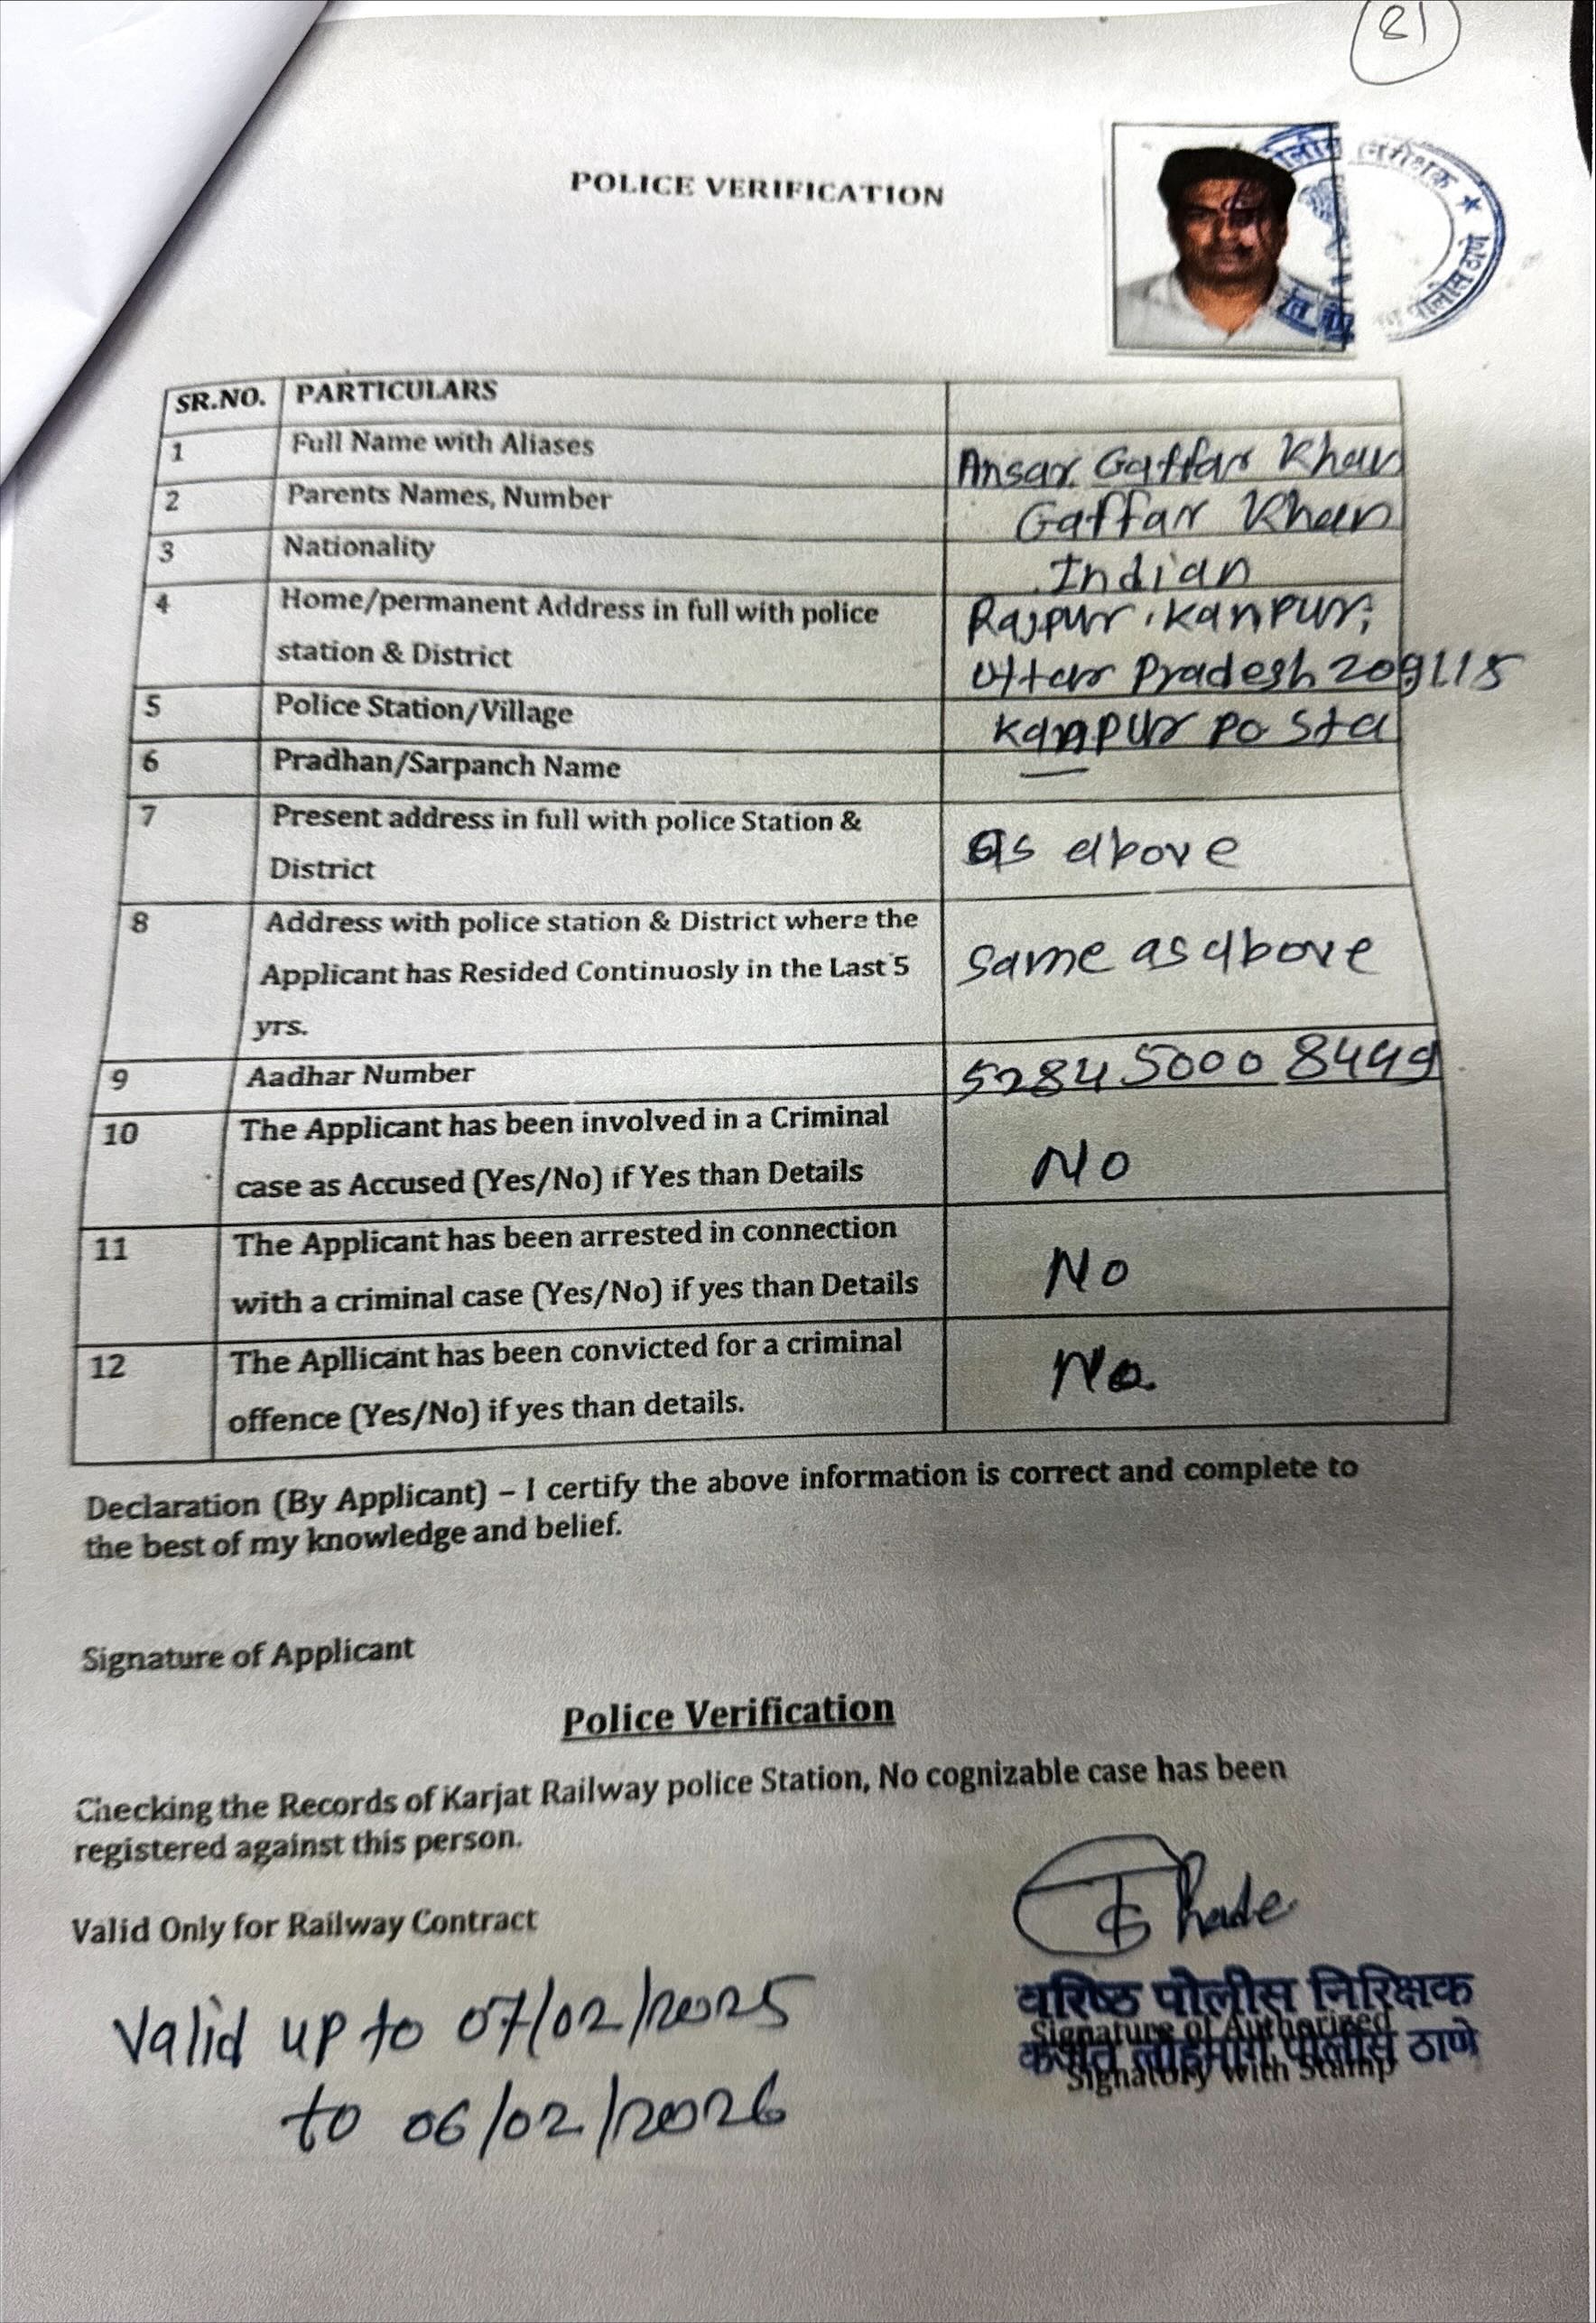 81
POLICE VERIFICATION
पोलीस निरीक्षक ★
पोलीस ठाणे
SR.NO. PARTICULARS
1 Full Name with Aliases Ansar Gaffar Khan
2 Parents Names, Number Gaffar Khan
3 Nationality Indian
4 Home/permanent Address in full with police Rajpur, Kanpur,
station & District Uttar Pradesh 209115
5 Police Station/Village Kanpur po sta
6 Pradhan/Sarpanch Name —
7 Present address in full with police Station & as above
District
8 Address with police station & District where the
Applicant has Resided Continuosly in the Last 5 same as above
yrs.
9 Aadhar Number 5284 5000 8449
10 The Applicant has been involved in a Criminal
case as Accused (Yes/No) if Yes than Details No
11 The Applicant has been arrested in connection
with a criminal case (Yes/No) if yes than Details No
12 The Apllicant has been convicted for a criminal No
offence (Yes/No) if yes than details.
Declaration (By Applicant) – I certify the above information is correct and complete to
the best of my knowledge and belief.
Signature of Applicant
Police Verification
Checking the Records of Karjat Railway police Station, No cognizable case has been
registered against this person.
Valid Only for Railway Contract
Valid up to 07/02/2025
to 06/02/2026
वरिष्ठ पोलीस निरिक्षक
Signature of Authorized
कर्जत लोहमार्ग पोलीस ठाणे
Signatory With Stamp